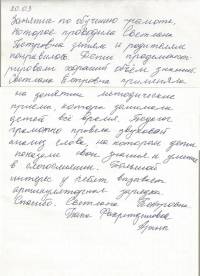 20.03
Занятие по обучению грамоте,
которое проводила Светлана
Петровна детям и родителям
понравилось. Дети продемонст-
рировали хороший объём знаний.
Светлана Петровна применяла
на занятии методические
приемы, которые занимали
детей всё время. Педагог
грамотно провела звуковой
анализ слова, на котором дети
показали свои знания и умения
в слогослиянии. Большой
интерес у ребят вызвала
артикуляторная зарядка.
Спасибо, Светлана Петровна.
Папа